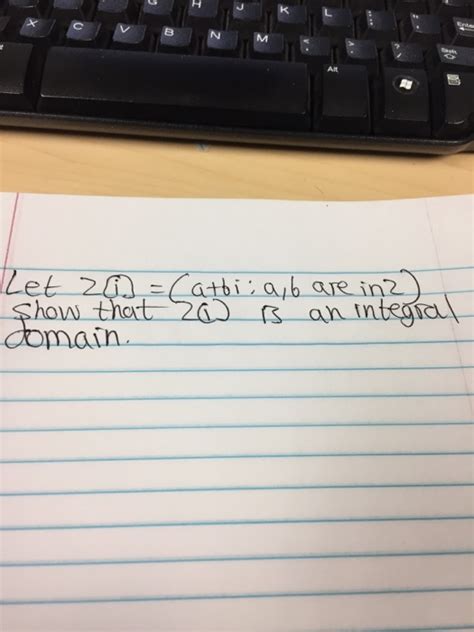 G H J K L
C V B N M < > ?
Alt
Let Z[i] = {a+bi : a,b are in Z}
show that Z[i] is an integral
domain.